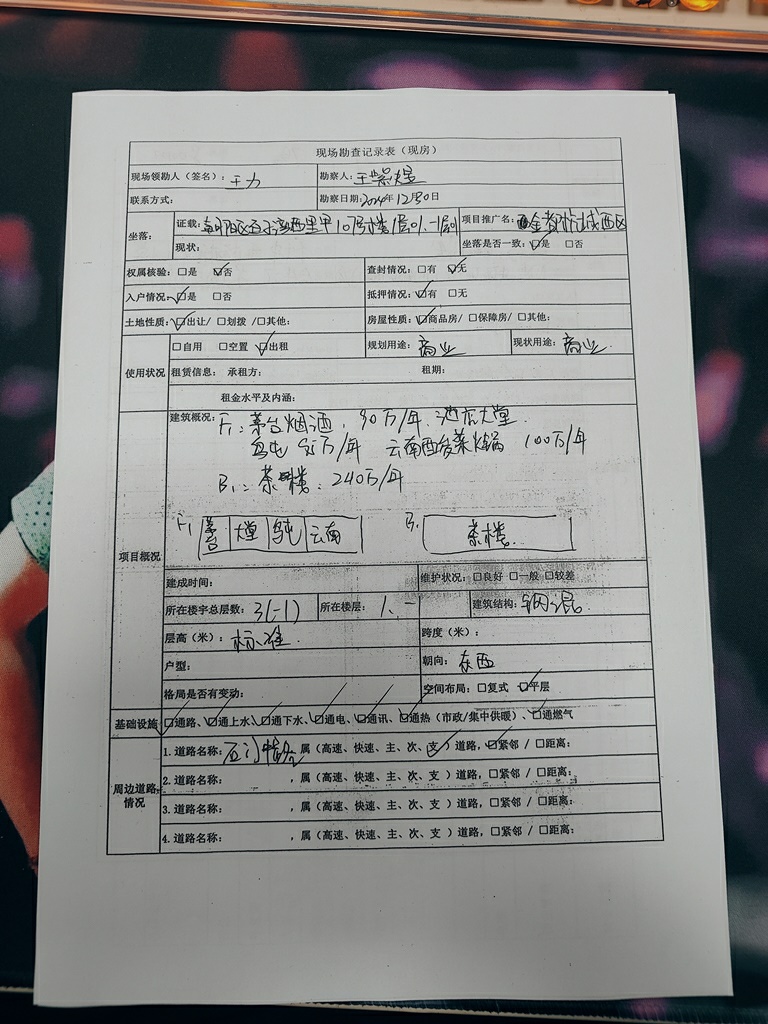 现场勘查记录表（现房）
现场领勘人（签名）：王力 勘察人：王紫煜
联系方式： 勘察日期：2024年12月30日
坐落： 证载：朝阳区 里甲10号楼1层01、-1层01 项目推广名： 城西区
现状： 坐落是否一致：☑是 □否
权属核验：□是 ☑否 查封情况：□有 ☑无
入户情况：☑是 □否 抵押情况：☑有 □无
土地性质：☑出让/□划拨/□其他： 房屋性质：☑商品房/□保障房/□其他：
使用状况 □自用 □空置 ☑出租 规划用途：商业 现状用途：商业
租赁信息： 承租方： 租期：
租金水平及内涵：
项目概况
建筑概况：F1：茅台烟酒，90万/年，酒店大堂
乌屯 95万/年 云南酸菜火锅 100万/年
B1：茶楼：240万/年
F1 茅台 大堂 乌屯 云南 B1 茶楼
建成时间： 维护状况：□良好 □一般 □较差
所在楼宇总层数：3(-1) 所在楼层：1、-1 建筑结构：钢混
层高（米）：标准 跨度（米）：
户型： 朝向：东西
格局是否有变动： 空间布局：□复式 ☑平层
基础设施 ☑通路、☑通上水、☑通下水、☑通电、☑通讯、☑通热（市政/集中供暖）、☑通燃气
周边道路情况
1.道路名称： ，属（高速、快速、主、次、支）道路，☑紧邻 / □距离：
2.道路名称： ，属（高速、快速、主、次、支 ）道路，□紧邻 / □距离：
3.道路名称： ，属（高速、快速、主、次、支 ）道路，□紧邻 / □距离：
4.道路名称： ，属（高速、快速、主、次、支 ）道路，□紧邻 / □距离：